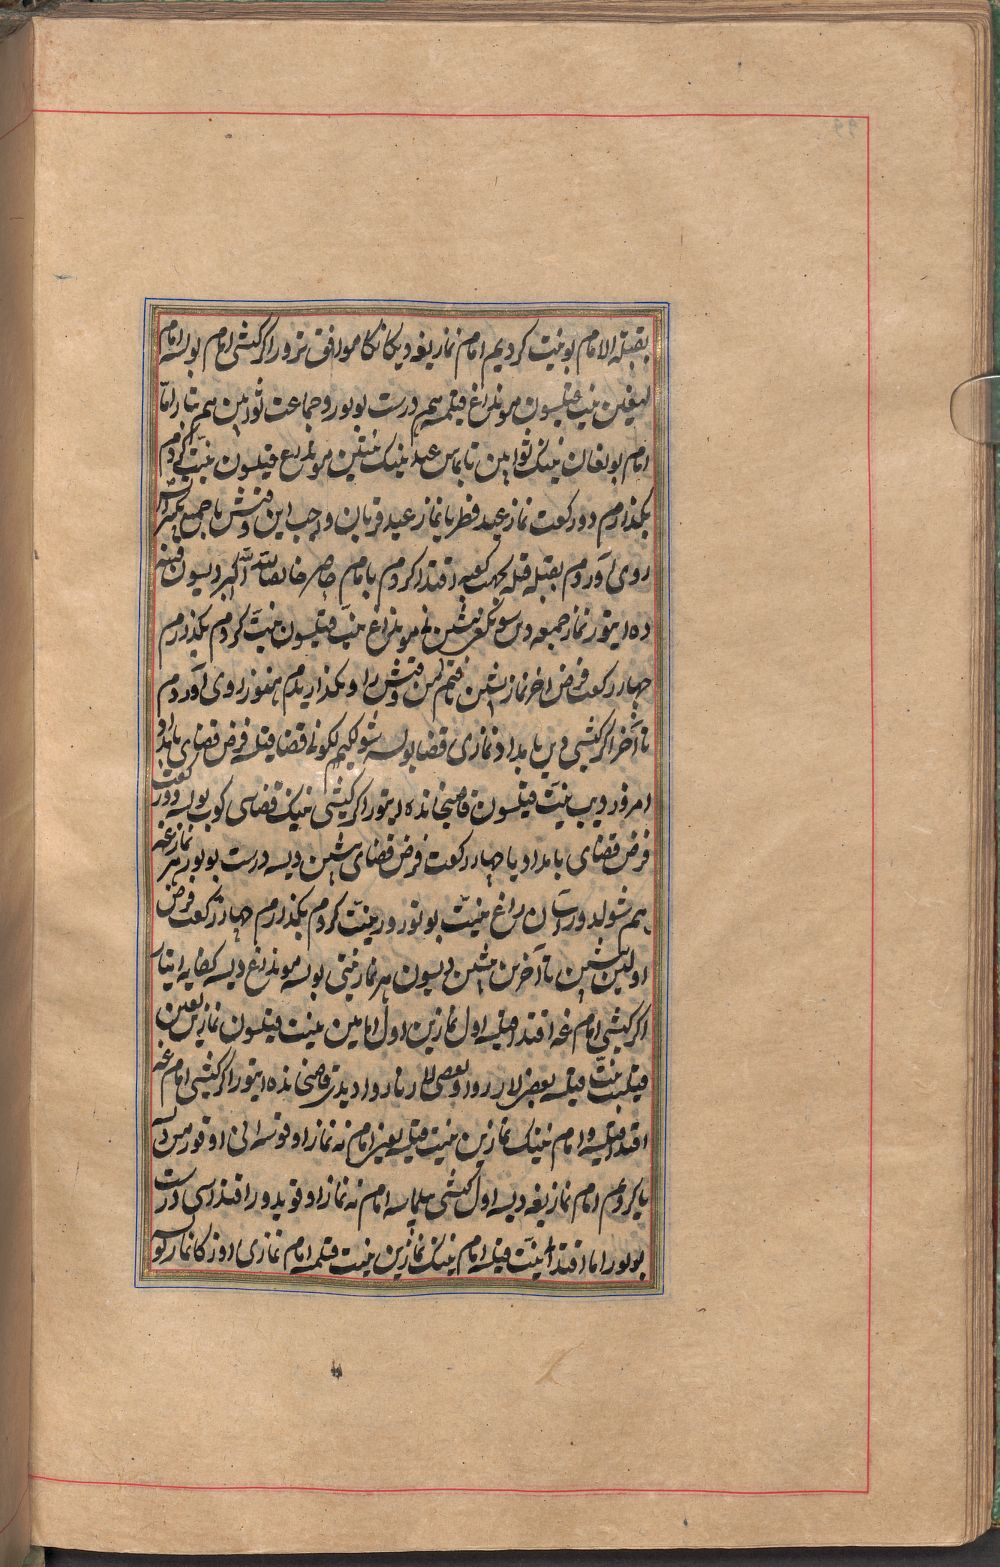 بقبله الامام بو نیت کردیم امام نمازیغه دیکانکا موافق ترور اکر کیشی امام بولسه امام
لیغین نیت قیلسون موندراغ قیلمسه هم درست بولور و جماعت ثوابین هم تبار اما
امام بولغان نینک ثوابین تابماس عید نینک نیتین موندراغ قیلسون نیت کردم
بکذارم دو رکعت نماز عید فطر یا نماز عید قربان واجب این وقتش با جمیع تکبیراتش
روی آوردم بقبله قبله جهت کعبه اقتدا کردم بامام حاضر خالصا لله الله اکبر دیسون قنیه
ده ایتور نماز جمعه دین سونکغی نی موندراغ نیت قیلسون نیت کردم بکذارم
چهار رکعت فرض اخر نماز پشین یافتم من وقتش را و نکذاریدم هنوز روی آوردم
تا آخر اکر کیشی دین بامداد نمازی قضا بولسه شول کیم قضا قیلسه فرض قضای بامداد
امروز دیب نیت قیلسون قاضیخانده ایتور اکر کیشی نینک قضاسی کوب بولسه دو رکعت
فرض قضای بامداد یا چهار رکعت فرض قضای پشین دیسه درست بولور هر نمازغه
هم شولدور آسان راغ نیت بو تورور نیت کردم بکذارم چهار رکعت فرض
اولین پشین تا آخرین پشین دیسون هر نماز نیتی بولسه موندراغ دیسه کفایه ایتار
اکر کیشی امام غه اقتدا قیلسه اول نمازین اول امامین نیت قیلسون نمازین یعین
قیلیب نیت قیلسه بعضی لار روا و بعضی لار ناروا دیدی قاضیخانده ایتور اکر کیشی امام غه
اقتدا قیلسه و امام نینک نمازین نیت قیلسه یعنی امام نه نماز اوقوسه انی اوقورمن دیسه
یا کردیم امام نمازیغه دیسه اول کیشی بیلماسه امام نه نماز اوقویدور اقتداسی درست
بولور اما اقتدا نیت قیلسه امام نینک نمازین نیت قیلمسه امام نمازی اوزکا نماز بولسه